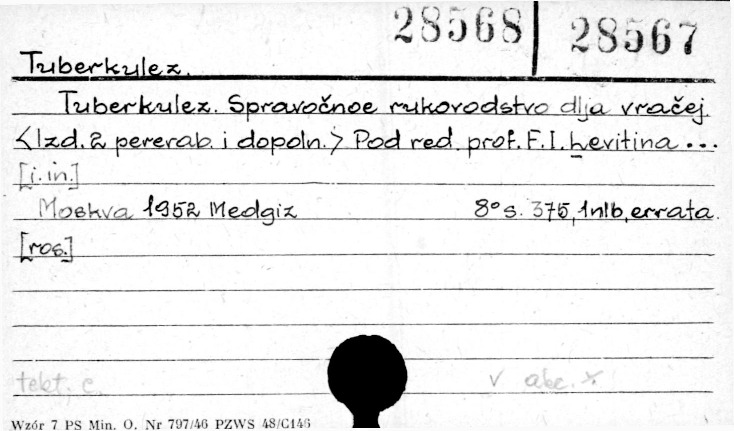 28568 28567
Tuberkulez.
Tuberkulez. Spravočnoe rukovodstvo dlja vračej.
<Izd. 2 pererab. i dopoln.> Pod red. prof. F.I. Levitina ...
[i.in.]
Moskva 1952 Medgiz 8° s. 375, 1nlb, errata.
[ros.]
tekt. c. v abc. x
Wzór 7 PS Min. O. Nr 797/46 PZWS 48/G146